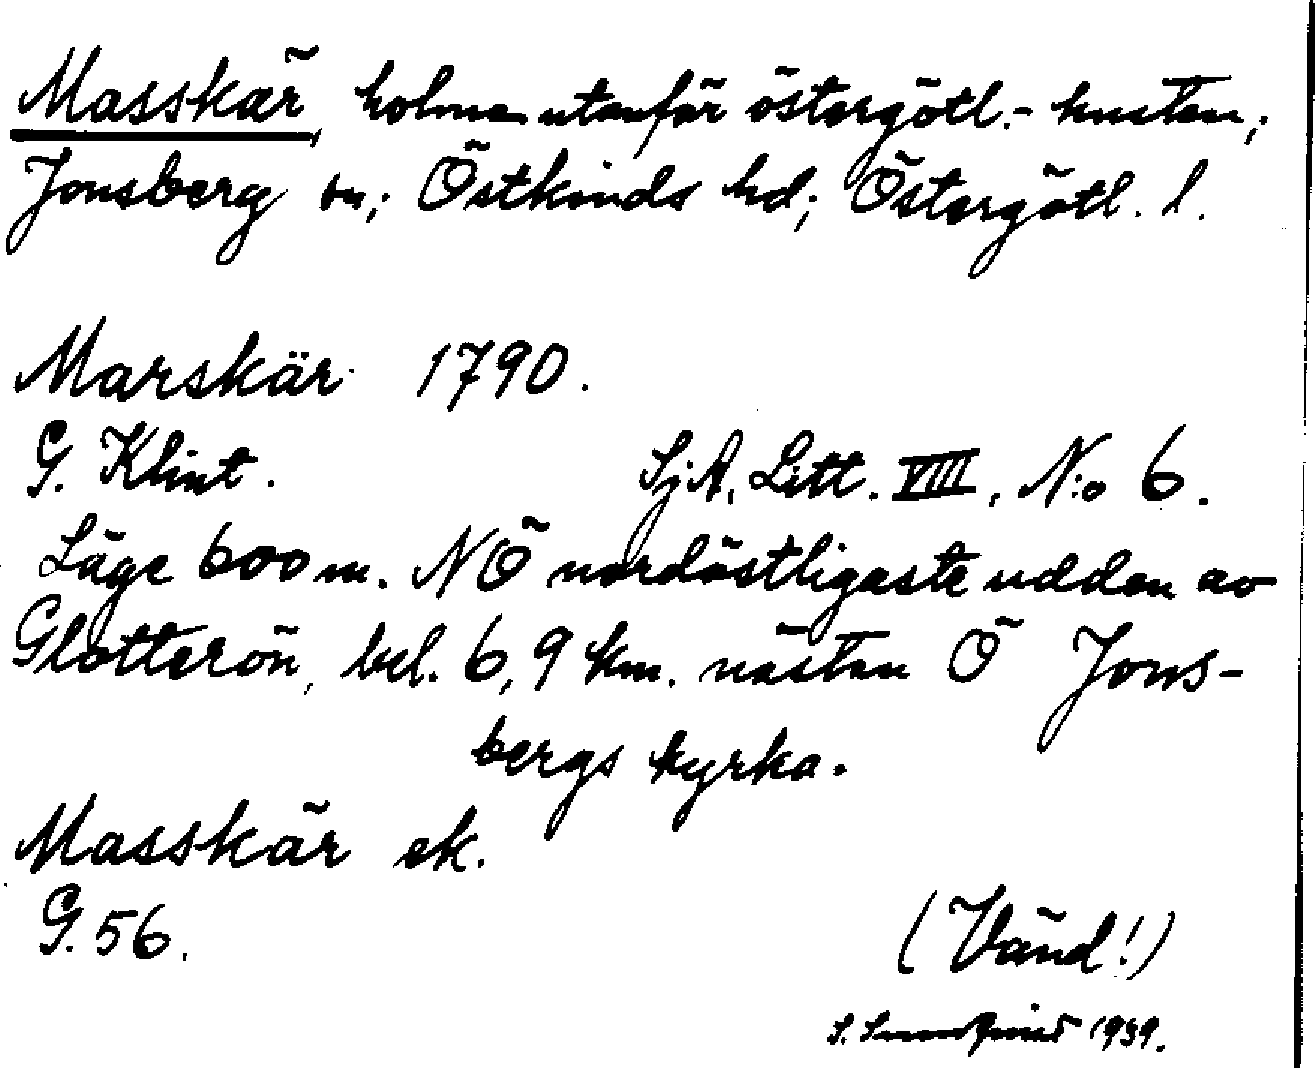 Masskär, holme utanför östergötl.-kusten;
Jonsberg sn; Östkinds hd; Östergötl. l.
Marskär 1790.
G. Klint. SjA. Litt. VIII, N:o 6.
Läge 600 m. NÖ nordöstligaste udden av
Glotterön, bel. 6,9 km. nästan Ö Jons-
bergs kyrka.
Masskär ek.
G. 56.
(Vänd!)
S. Lundqvist 1939.